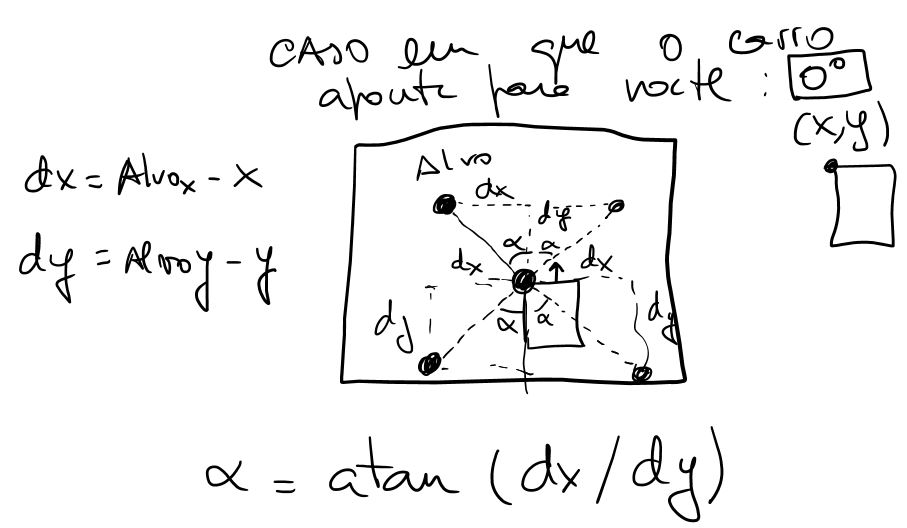 CASO em que o carro
aponte para norte : 0°
(x,y)
dx = Alvox - x
dy = Alvoy - y
Alvo
dx
dy
α α
dx dx
α α
dy dy
α = atan (dx/dy)